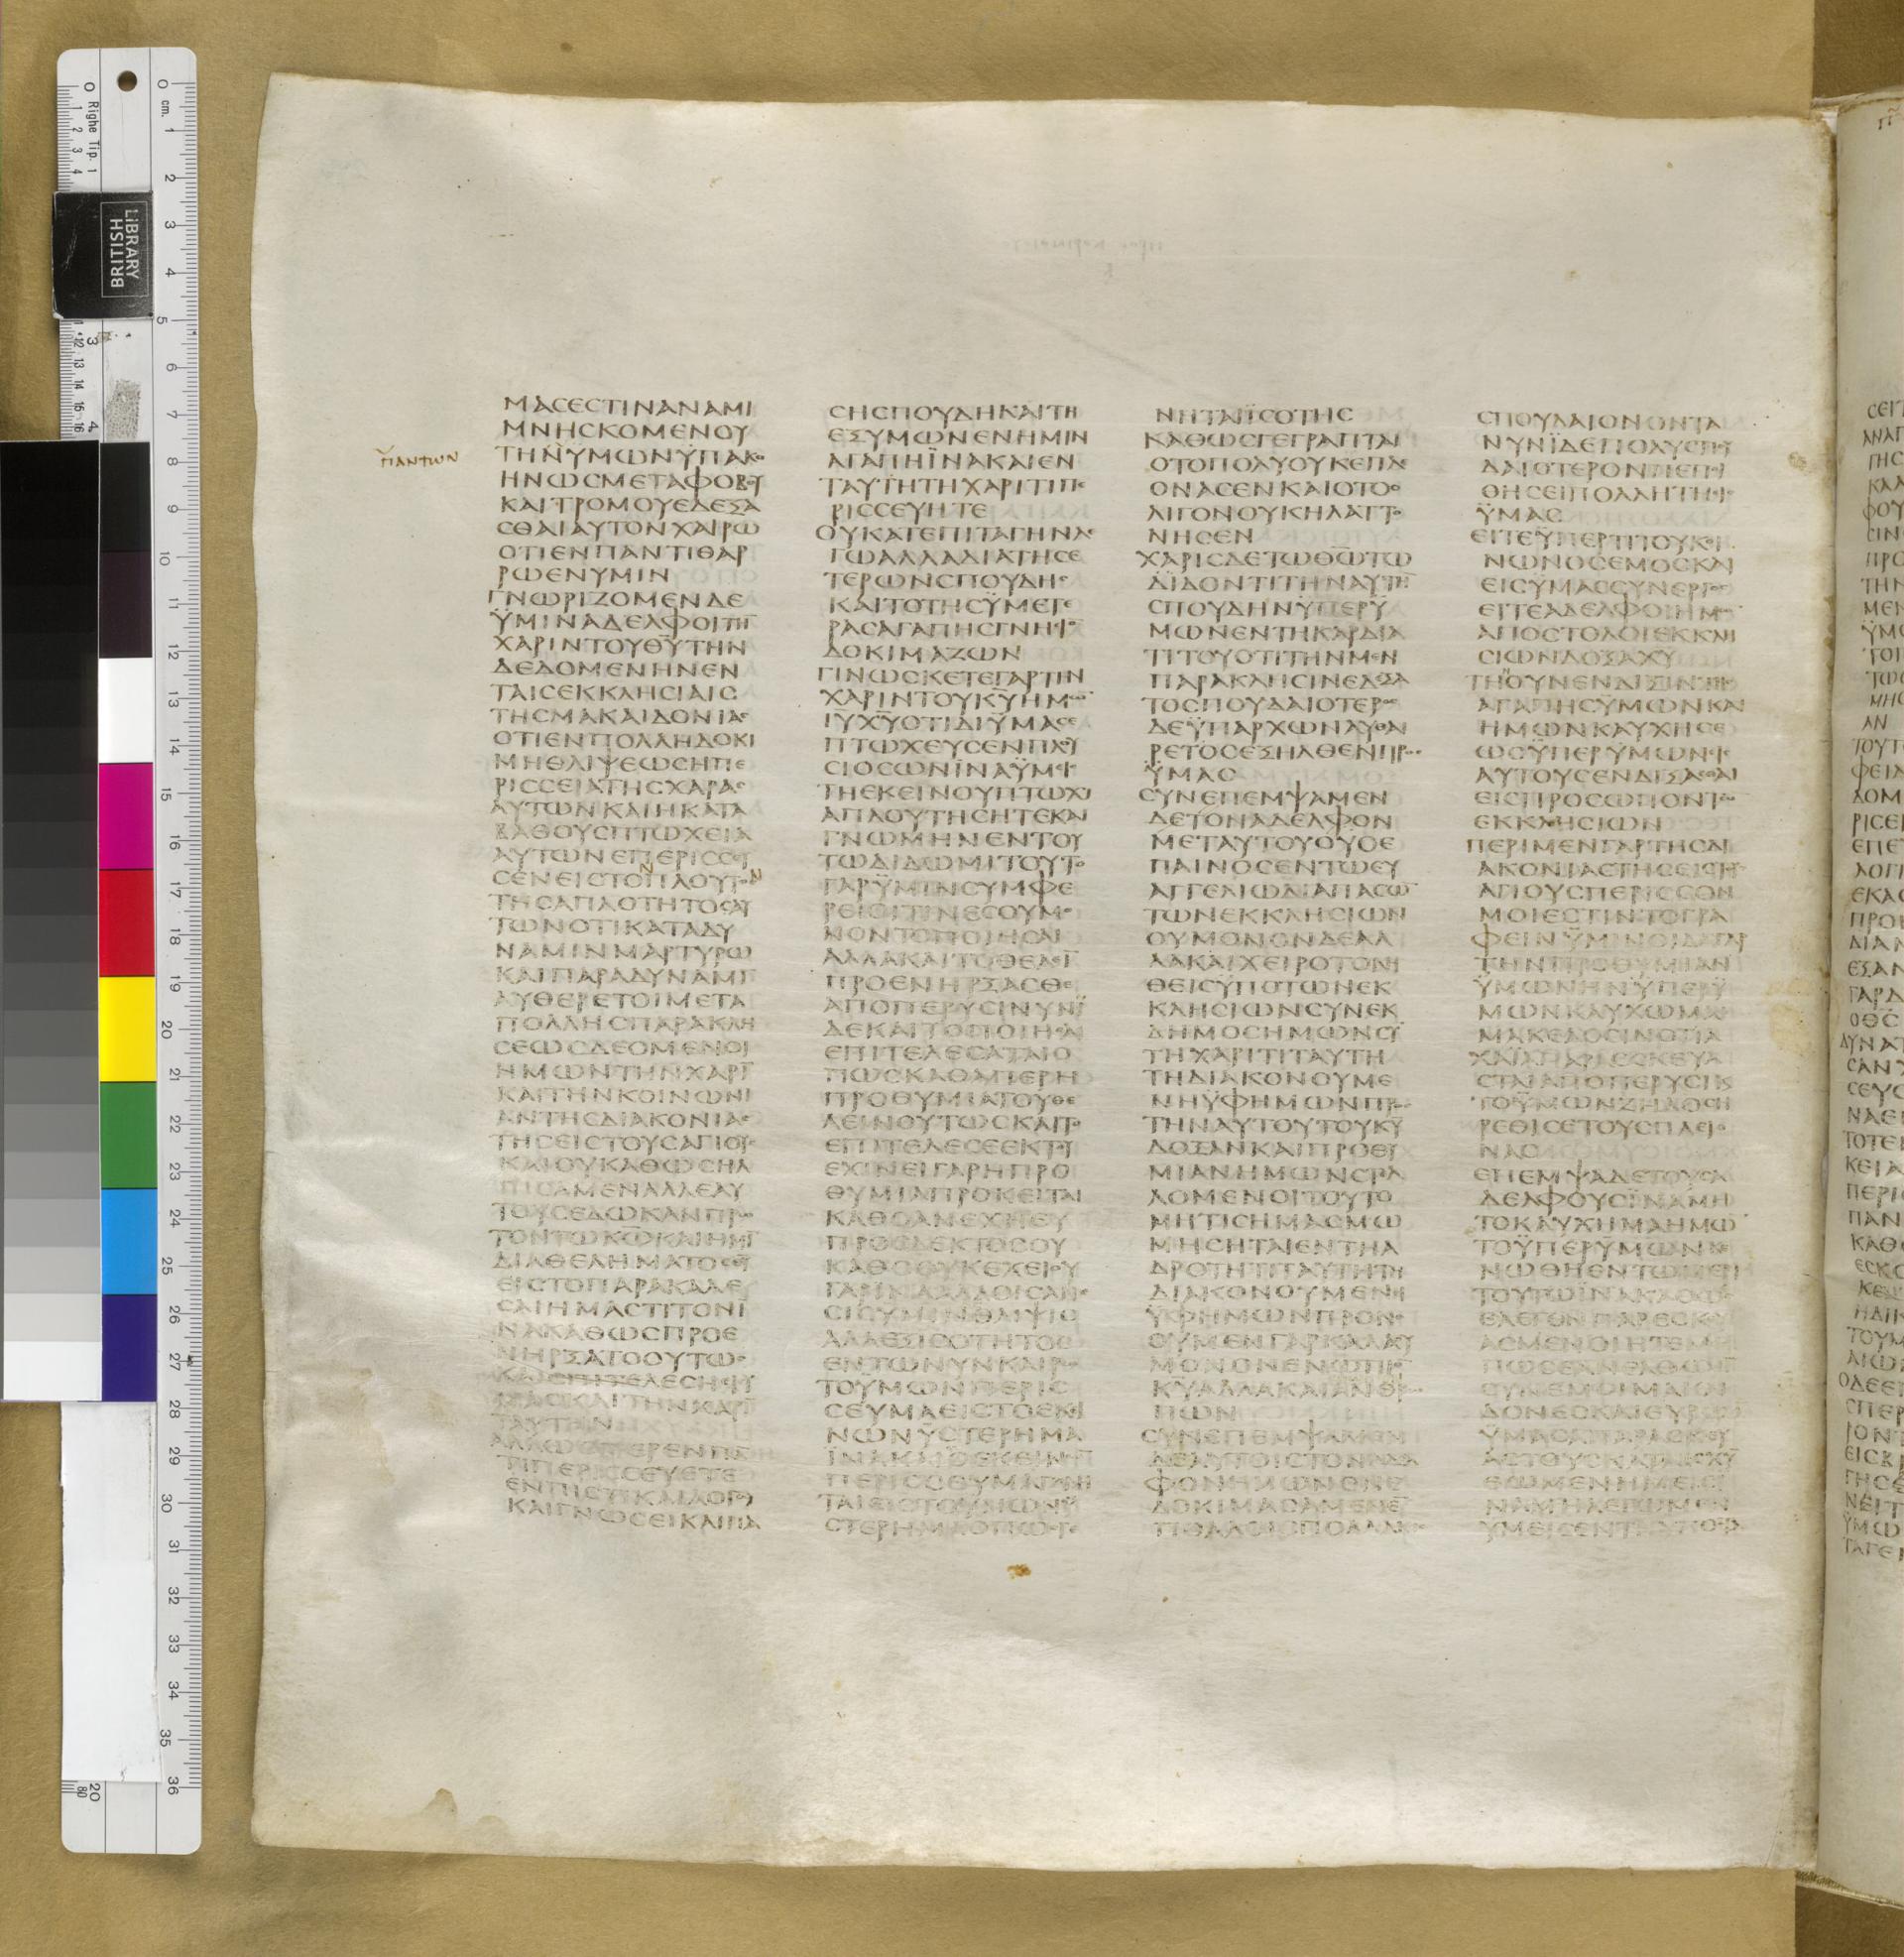 ΠΑΝΤΩΝ
ΜΑϹΕϹΤΙΝΑΝΑΜΙ
ΜΝΗϹΚΟΜΕΝΟΥ
ΤΗΝΥΜΩΝΫΠΑΚΟ
ΗΝΩϹΜΕΤΑΦΟΒΟΥ
ΚΑΙΤΡΟΜΟΥΕΔΕΞΑ
ϹΘΑΙΑΥΤΟΝΧΑΙΡΩ
ΟΤΙΕΝΠΑΝΤΙΘΑΡ
ΡΩΕΝΥΜΙΝ
ΓΝΩΡΙΖΟΜΕΝΔΕ
ΫΜΙΝΑΔΕΛΦΟΙΤΗ̅
ΧΑΡΙΝΤΟΥΘ̅Υ̅ΤΗΝ
ΔΕΔΟΜΕΝΗΝΕΝ
ΤΑΙϹΕΚΚΛΗϹΙΑΙϹ
ΤΗϹΜΑΚΑΙΔΟΝΙΑϹ
ΟΤΙΕΝΠΟΛΛΗΔΟΚΙ
ΜΗΘΛΙΨΕΩϹΗΠΕ
ΡΙϹϹΕΙΑΤΗϹΧΑΡΑϹ
ΑΥΤΩΝΚΑΙΗΚΑΤΑ
ΒΑΘΟΥϹΠΤΩΧΕΙΑ
ΑΥΤΩΝΕΠΕΡΙϹϹΕΥ
ϹΕΝΕΙϹΤΟΠΛΟΥΤΟϹ
ΤΗϹΑΠΛΟΤΗΤΟϹΑΥ
ΤΩΝΟΤΙΚΑΤΑΔΥ
ΝΑΜΙΝΜΑΡΤΥΡΩ
ΚΑΙΠΑΡΑΔΥΝΑΜΙ̅
ΑΥΘΕΡΕΤΟΙΜΕΤΑ
ΠΟΛΛΗϹΠΑΡΑΚΛΗ
ϹΕΩϹΔΕΟΜΕΝΟΙ
ΗΜΩΝΤΗΝΧΑΡΙ̅
ΚΑΙΤΗΝΚΟΙΝΩΝΙ
ΑΝΤΗϹΔΙΑΚΟΝΙΑϹ
ΤΗϹΕΙϹΤΟΥϹΑΓΙΟΥϹ
ΚΑΙΟΥΚΑΘΩϹΗΛ
ΠΙϹΑΜΕΝΑΛΛΕΑΥ
ΤΟΥϹΕΔΩΚΑΝΠΡΩ
ΤΟΝΤΩΚ̅Ω̅ΚΑΙΗΜΙ̅
ΔΙΑΘΕΛΗΜΑΤΟϹΘ̅Υ̅
ΕΙϹΤΟΠΑΡΑΚΑΛΕ
ϹΑΙΗΜΑϹΤΙΤΟΝΙ
ΝΑΚΑΘΩϹΠΡΟΕ
ΝΗΡΞΑΤΟΟΥΤΩϹ
ΚΑΙΕΠΙΤΕΛΕϹΗΕΙϹΥ
ΜΑϹΚΑΙΤΗΝΧΑΡΙ̅
ΤΑΥΤΗΝ
ΑΛΛΩϹΠΕΡΕΝΠΑ̅
ΤΙΠΕΡΙϹϹΕΥΕΤΕ
ΕΝΠΙϹΤΙΚΑΙΛΟΓΩ
ΚΑΙΓΝΩϹΕΙΚΑΙΠΑ
ϹΗϹΠΟΥΔΗΚΑΙΤΗ
ΕΞΥΜΩΝΕΝΗΜΙΝ
ΑΓΑΠΗΪΝΑΚΑΙΕΝ
ΤΑΥΤΗΤΗΧΑΡΙΤΙΠΕ
ΡΙϹϹΕΥΗΤΕ
ΟΥΚΑΤΕΠΙΤΑΓΗΝΛΕ
ΓΩΑΛΛΑΔΙΑΤΗϹΕ
ΤΕΡΩΝϹΠΟΥΔΗϹ
ΚΑΙΤΟΤΗϹΫΜΕΤΕ
ΡΑϹΑΓΑΠΗϹΓΝΗϹΙΟ̅
ΔΟΚΙΜΑΖΩΝ
ΓΙΝΩϹΚΕΤΕΓΑΡΤΗΝ
ΧΑΡΙΝΤΟΥΚ̅Υ̅ΗΜΩ̅
Ι̅Υ̅Χ̅Υ̅ΟΤΙΔΙΫΜΑϹΕ
ΠΤΩΧΕΥϹΕΝΠΛΟΥ
ϹΙΟϹΩΝΪΝΑΫΜΙϹ
ΤΗΕΚΕΙΝΟΥΠΤΩΧΙ
ΑΠΛΟΥΤΗϹΗΤΕΚΑΙ
ΓΝΩΜΗΝΕΝΤΟΥ
ΤΩΔΙΔΩΜΙΤΟΥΤΟ
ΓΑΡΫΜΙΝϹΥΜΦΕ
ΡΕΙΟΙΤΙΝΕϹΟΥΜΟ
ΝΟΝΤΟΠΟΙΗϹΑΙ
ΑΛΛΑΚΑΙΤΟΘΕΛΕΙ̅
ΠΡΟΕΝΗΡΞΑϹΘΕ
ΑΠΟΠΕΡΥϹΙΝΥΝΪ
ΔΕΚΑΙΤΟΠΟΙΗϹΑΙ
ΕΠΙΤΕΛΕϹΑΤΑΙΟ
ΠΩϹΚΑΘΑΠΕΡΗ
ΠΡΟΘΥΜΙΑΤΟΥΘΕ
ΛΕΙΝΟΥΤΩϹΚΑΙΤΟ
ΕΠΙΤΕΛΕϹΕΕΚΤΟΥ
ΕΧΙΝΕΙΓΑΡΗΠΡΟ
ΘΥΜΙΑΠΡΟΚΕΙΤΑΙ
ΚΑΘΟΑΝΕΧΗΕΥ
ΠΡΟϹΔΕΚΤΟϹΟΥ
ΚΑΘΟΟΥΚΕΧΕΙΟΥ
ΓΑΡΙΝΑΑΛΛΟΙϹΑΝΕ
ϹΙϹΫΜΙΝΘΛΙΨΙϹ
ΑΛΛΕΞΙϹΟΤΗΤΟϹ
ΕΝΤΩΝΥΝΚΑΙΡΩ
ΤΟΫΜΩΝΠΕΡΙϹ
ϹΕΥΜΑΕΙϹΤΟΕΚΙ
ΝΩΝΫϹΤΕΡΗΜΑ
ΪΝΑΚΑΙΤΟΕΚΕΙΝΩ̅
ΠΕΡΙϹϹΕΥΜΑΓΕΝΗ
ΤΑΙΕΙϹΤΟΥΜΩΝΫ
ϹΤΕΡΗΜΑΟΠΩϹΓΕ
ΝΗΤΑΙΪϹΟΤΗϹ
ΚΑΘΩϹΓΕΓΡΑΠΤΑΙ
ΟΤΟΠΟΛΥΟΥΚΕΠΛΕ
ΟΝΑϹΕΝΚΑΙΟΤΟΟ
ΛΙΓΟΝΟΥΚΗΛΑΤΤΟ
ΝΗϹΕΝ
ΧΑΡΙϹΔΕΤΩΘ̅Ω̅ΤΩ
ΔΙΔΟΝΤΙΤΗΝΑΥΤΗ̅
ϹΠΟΥΔΗΝΫΠΕΡΫ
ΜΩΝΕΝΤΗΚΑΡΔΙΑ
ΤΙΤΟΥΟΤΙΤΗΝΜΕΝ
ΠΑΡΑΚΛΗϹΙΝΕΔΕΞΑ
ΤΟϹΠΟΥΔΑΙΟΤΕΡΟϹ
ΔΕΫΠΑΡΧΩΝΑΥΘΑΙ
ΡΕΤΟϹΕΞΗΛΘΕΝΠΡΟϹ
ΫΜΑϹ
ϹΥΝΕΠΕΜΨΑΜΕΝ
ΔΕΤΟΝΑΔΕΛΦΟΝ
ΜΕΤΑΥΤΟΥΟΥΟΕ
ΠΑΙΝΟϹΕΝΤΩΕΥ
ΑΓΓΕΛΙΩΔΙΑΠΑϹΩ̅
ΤΩΝΕΚΚΛΗϹΙΩΝ
ΟΥΜΟΝΟΝΔΕΑΛ
ΛΑΚΑΙΧΕΙΡΟΤΟΝΗ
ΘΕΙϹΫΠΟΤΩΝΕΚ
ΚΛΗϹΙΩΝϹΥΝΕΚ
ΔΗΜΟϹΗΜΩΝϹΥ̅
ΤΗΧΑΡΙΤΙΤΑΥΤΗ
ΤΗΔΙΑΚΟΝΟΥΜΕ
ΝΗΫΦΗΜΩΝΠΡΟϹ
ΤΗΝΑΥΤΟΥΤΟΥΚ̅Υ̅
ΔΟΞΑΝΚΑΙΠΡΟΘΥ
ΜΙΑΝΗΜΩΝϹΤΕΛ
ΛΟΜΕΝΟΙΤΟΥΤΟ
ΜΗΤΙϹΗΜΑϹΜΩ
ΜΗϹΗΤΑΙΕΝΤΗΑ
ΔΡΟΤΗΤΙΤΑΥΤΗΤΗ
ΔΙΑΚΟΝΟΥΜΕΝΗ
ΫΦΗΜΩΝΠΡΟΝΟ
ΟΥΜΕΝΓΑΡΚΑΛΑΟΥ
ΜΟΝΟΝΕΝΩΠΙΟ̅
Κ̅Υ̅ΑΛΛΑΚΑΙΑΝΘΡΩ
ΠΩΝ
ϹΥΝΕΠΕΜΨΑΜΕΝ
ΔΕΑΥΤΟΙϹΤΟΝΑΔΕΛ
ΦΟΝΗΜΩΝΟΝΕ
ΔΟΚΙΜΑϹΑΜΕΝΕ̅
ΠΟΛΛΟΙϹΠΟΛΛΑΚΙϹ
ϹΠΟΥΔΑΙΟΝΟΝΤΑ
ΝΥΝΪΔΕΠΟΛΥϹΠΟΥ
ΔΑΙΟΤΕΡΟΝΠΕΠΟΙ
ΘΗϹΕΙΠΟΛΛΗΤΗΕΙϹ
ΫΜΑϹ
ΕΙΤΕΫΠΕΡΤΙΤΟΥΚΟΙ
ΝΩΝΟϹΕΜΟϹΚΑΙ
ΕΙϹΫΜΑϹϹΥΝΕΡΓΟϹ
ΕΙΤΕΑΔΕΛΦΟΙΗΜΩ̅
ΑΠΟϹΤΟΛΟΙΕΚΚΛΗ
ϹΙΩΝΔΟΞΑΧ̅Υ̅
ΤΗΟΥΝΕΝΔΙΞΙΝΤΗϹ
ΑΓΑΠΗϹΫΜΩΝΚΑΙ
ΗΜΩΝΚΑΥΧΗϹΕ
ΩϹΫΠΕΡΫΜΩΝΕΙϹ
ΑΥΤΟΥϹΕΝΔΙΞΑϹΘΑΙ
ΕΙϹΠΡΟϹΩΠΟΝΤΩ̅
ΕΚΚΛΗϹΙΩΝ
ΠΕΡΙΜΕΝΓΑΡΤΗϹΔΙ
ΑΚΟΝΙΑϹΤΗϹΕΙϹΤΟΥϹ
ΑΓΙΟΥϹΠΕΡΙϹϹΟΝ
ΜΟΙΕϹΤΙΝΤΟΓΡΑ
ΦΕΙΝΫΜΙΝΟΙΔΑΓΑΡ
ΤΗΝΠΡΟΘΥΜΙΑΝ
ΫΜΩΝΗΝΫΠΕΡΫ
ΜΩΝΚΑΥΧΩΜΑΙ
ΜΑΚΕΔΟϹΙΝΟΤΙΑ
ΧΑΪΑΠΑΡΕϹΚΕΥΑ
ϹΤΑΙΑΠΟΠΕΡΥϹΙΚΑΙ
ΤΟΫΜΩΝΖΗΛΟϹΗ
ΡΕΘΙϹΕΤΟΥϹΠΛΕΙΟ
ΝΑϹ
ΕΠΕΜΨΑΔΕΤΟΥϹΑ
ΔΕΛΦΟΥϹΪΝΑΜΗ
ΤΟΚΑΥΧΗΜΑΗΜΩ̅
ΤΟΫΠΕΡΫΜΩΝΚΕ
ΝΩΘΗΕΝΤΩΜΕΡΙ
ΤΟΥΤΩΪΝΑΚΑΘΩϹ
ΕΛΕΓΟΝΠΑΡΕϹΚΕΥ
ΑϹΜΕΝΟΙΗΤΕΜΗ
ΠΩϹΕΑΝΕΛΘΩϹΙ̅
ϹΥΝΕΜΟΙΜΑΚΕ
ΔΟΝΕϹΚΑΙΕΥΡΩϹΙ̅
ΫΜΑϹΑΠΑΡΑϹΚΕΥ
ΑϹΤΟΥϹΚΑΤΑΙϹΧΥ̅
ΘΩΜΕΝΗΜΕΙϹΪ
ΝΑΜΗΛΕΓΩΜΕΝ
ΥΜΕΙϹΕΝΤΗΥΠΟϹΤΑ